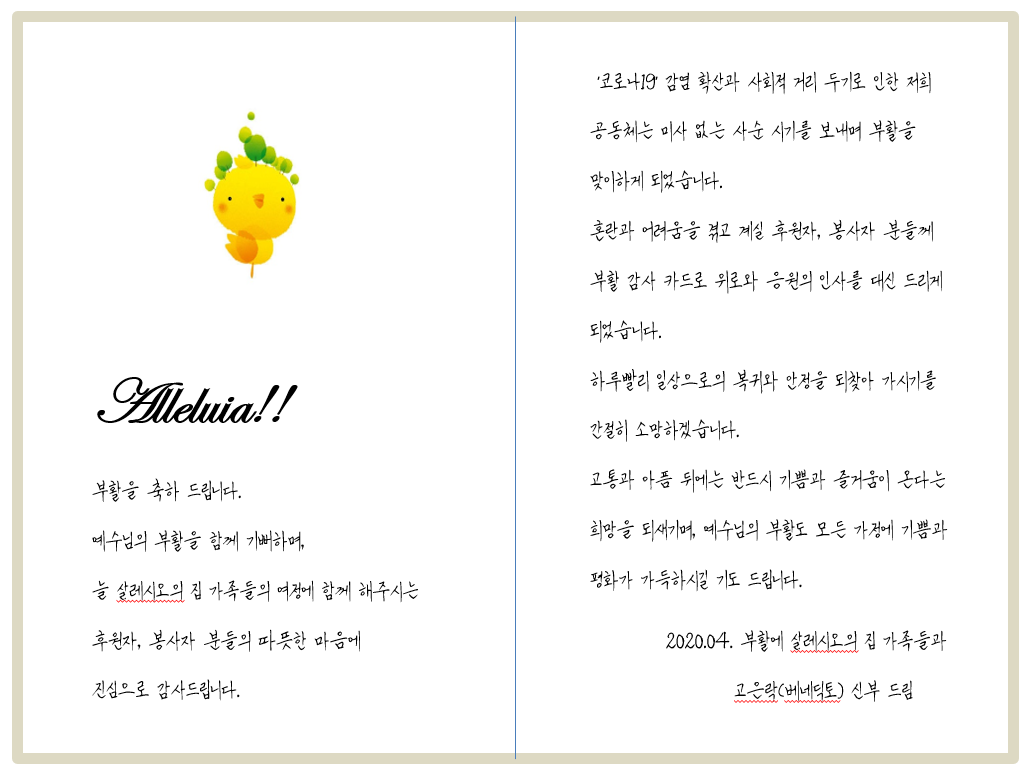 Alleluia!!
부활을 축하 드립니다.
예수님의 부활을 함께 기뻐하며,
늘 살레시오의 집 가족들의 여정에 함께 해주시는
후원자, 봉사자 분들의 따뜻한 마음에
진심으로 감사드립니다.
'코로나19' 감염 확산과 사회적 거리 두기로 인한 저희
공동체는 미사 없는 사순 시기를 보내며 부활을
맞이하게 되었습니다.
혼란과 어려움을 겪고 계실 후원자, 봉사자 분들께
부활 감사 카드로 위로와 응원의 인사를 대신 드리게
되었습니다.
하루빨리 일상으로의 복귀와 안정을 되찾아 가시기를
간절히 소망하겠습니다.
고통과 아픔 뒤에는 반드시 기쁨과 즐거움이 온다는
희망을 되새기며, 예수님의 부활도 모든 가정에 기쁨과
평화가 가득하시길 기도 드립니다.
2020.04. 부활에 살레시오의 집 가족들과
고은락(베네딕토) 신부 드림